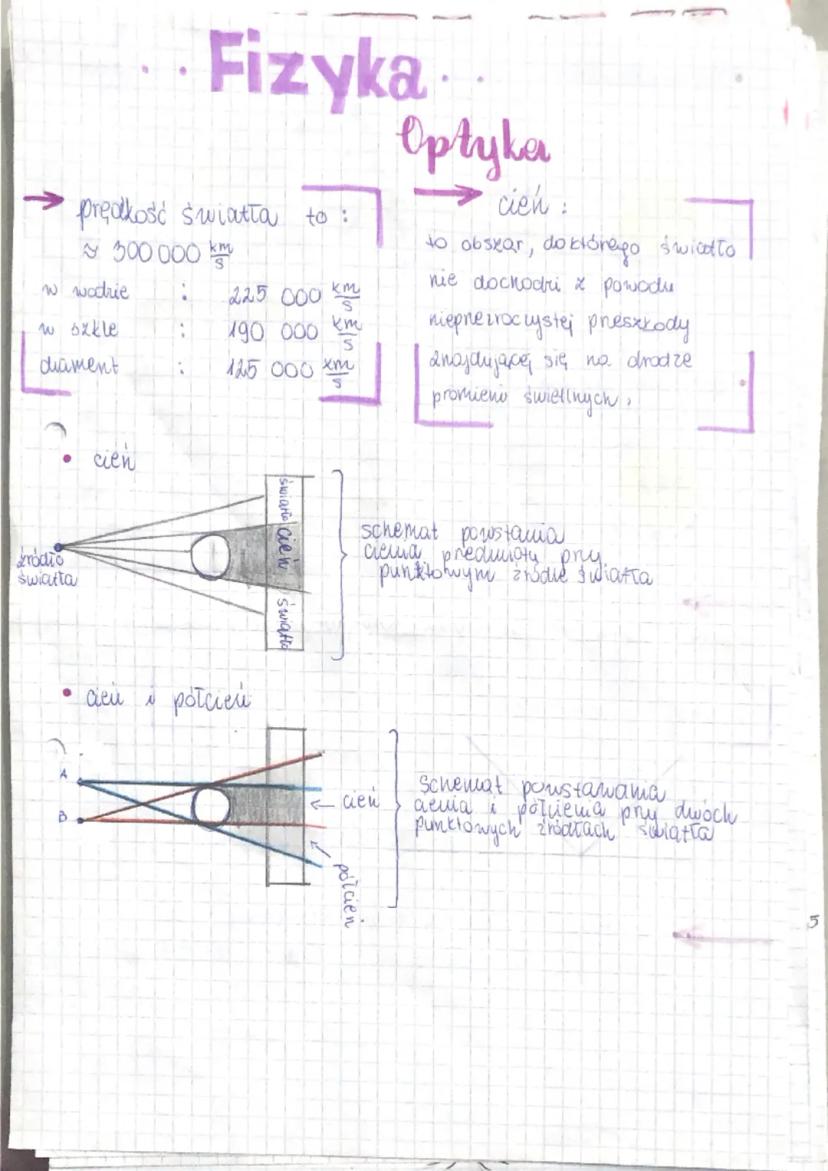 Fizyka
Optyka
→ prędkość światła to :
≈ 300 000 km/s
w wodzie : 225 000 km/s
w szkle : 190 000 km/s
diament : 125 000 km/s
→ cień :
to obszar, do którego światło
nie dochodzi z powodu
nieprzezroczystej przeszkody
znajdującej się na drodze
promieni świetlnych.
• cień
źródło
światła
światło
cień
światło
schemat powstania
cienia przedmiotu przy
punktowym źródle światła
• cień i półcień
A
B
← cień
półcień
schemat powstawania
cienia i półcienia przy dwóch
punktowych źródłach światła
5